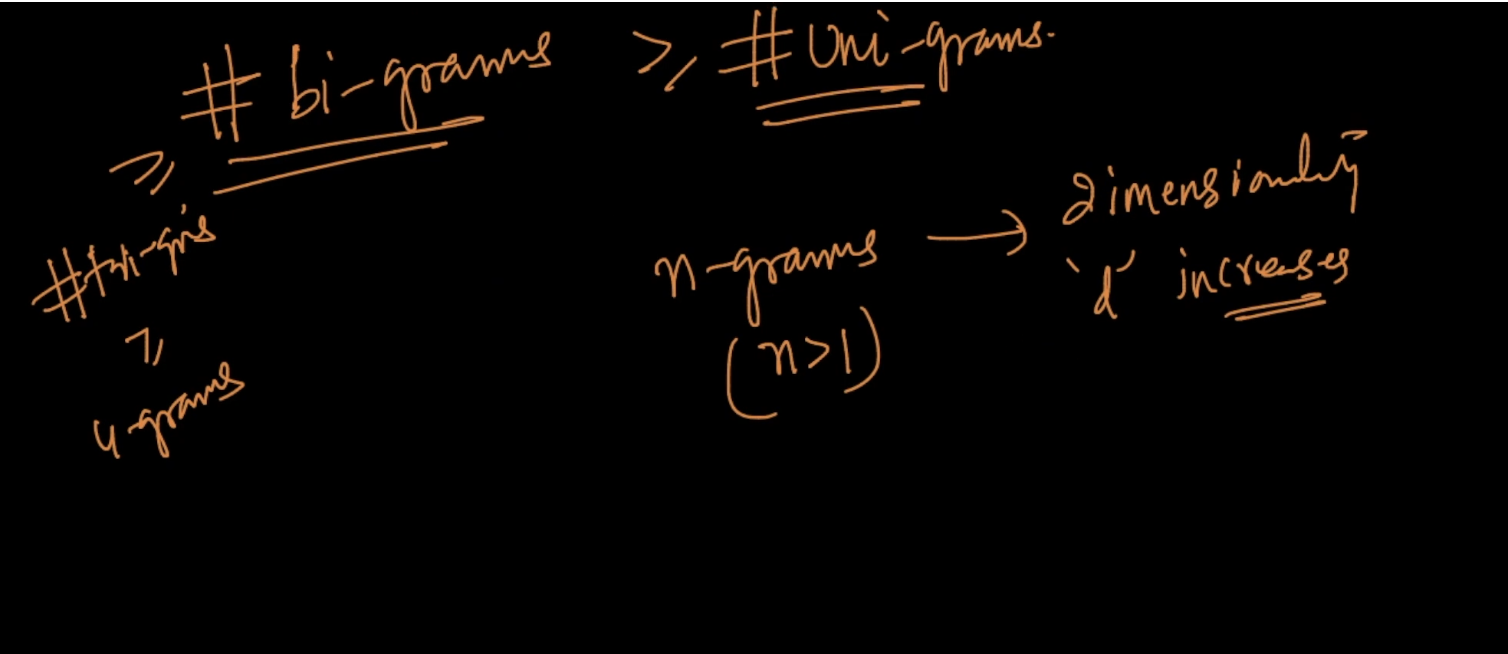 # bi-grams ⩾ # uni-grams.
⩾
# tri-gr's
⩾
4-grams
n-grams → dimensionality
(n>1) 'd' increases